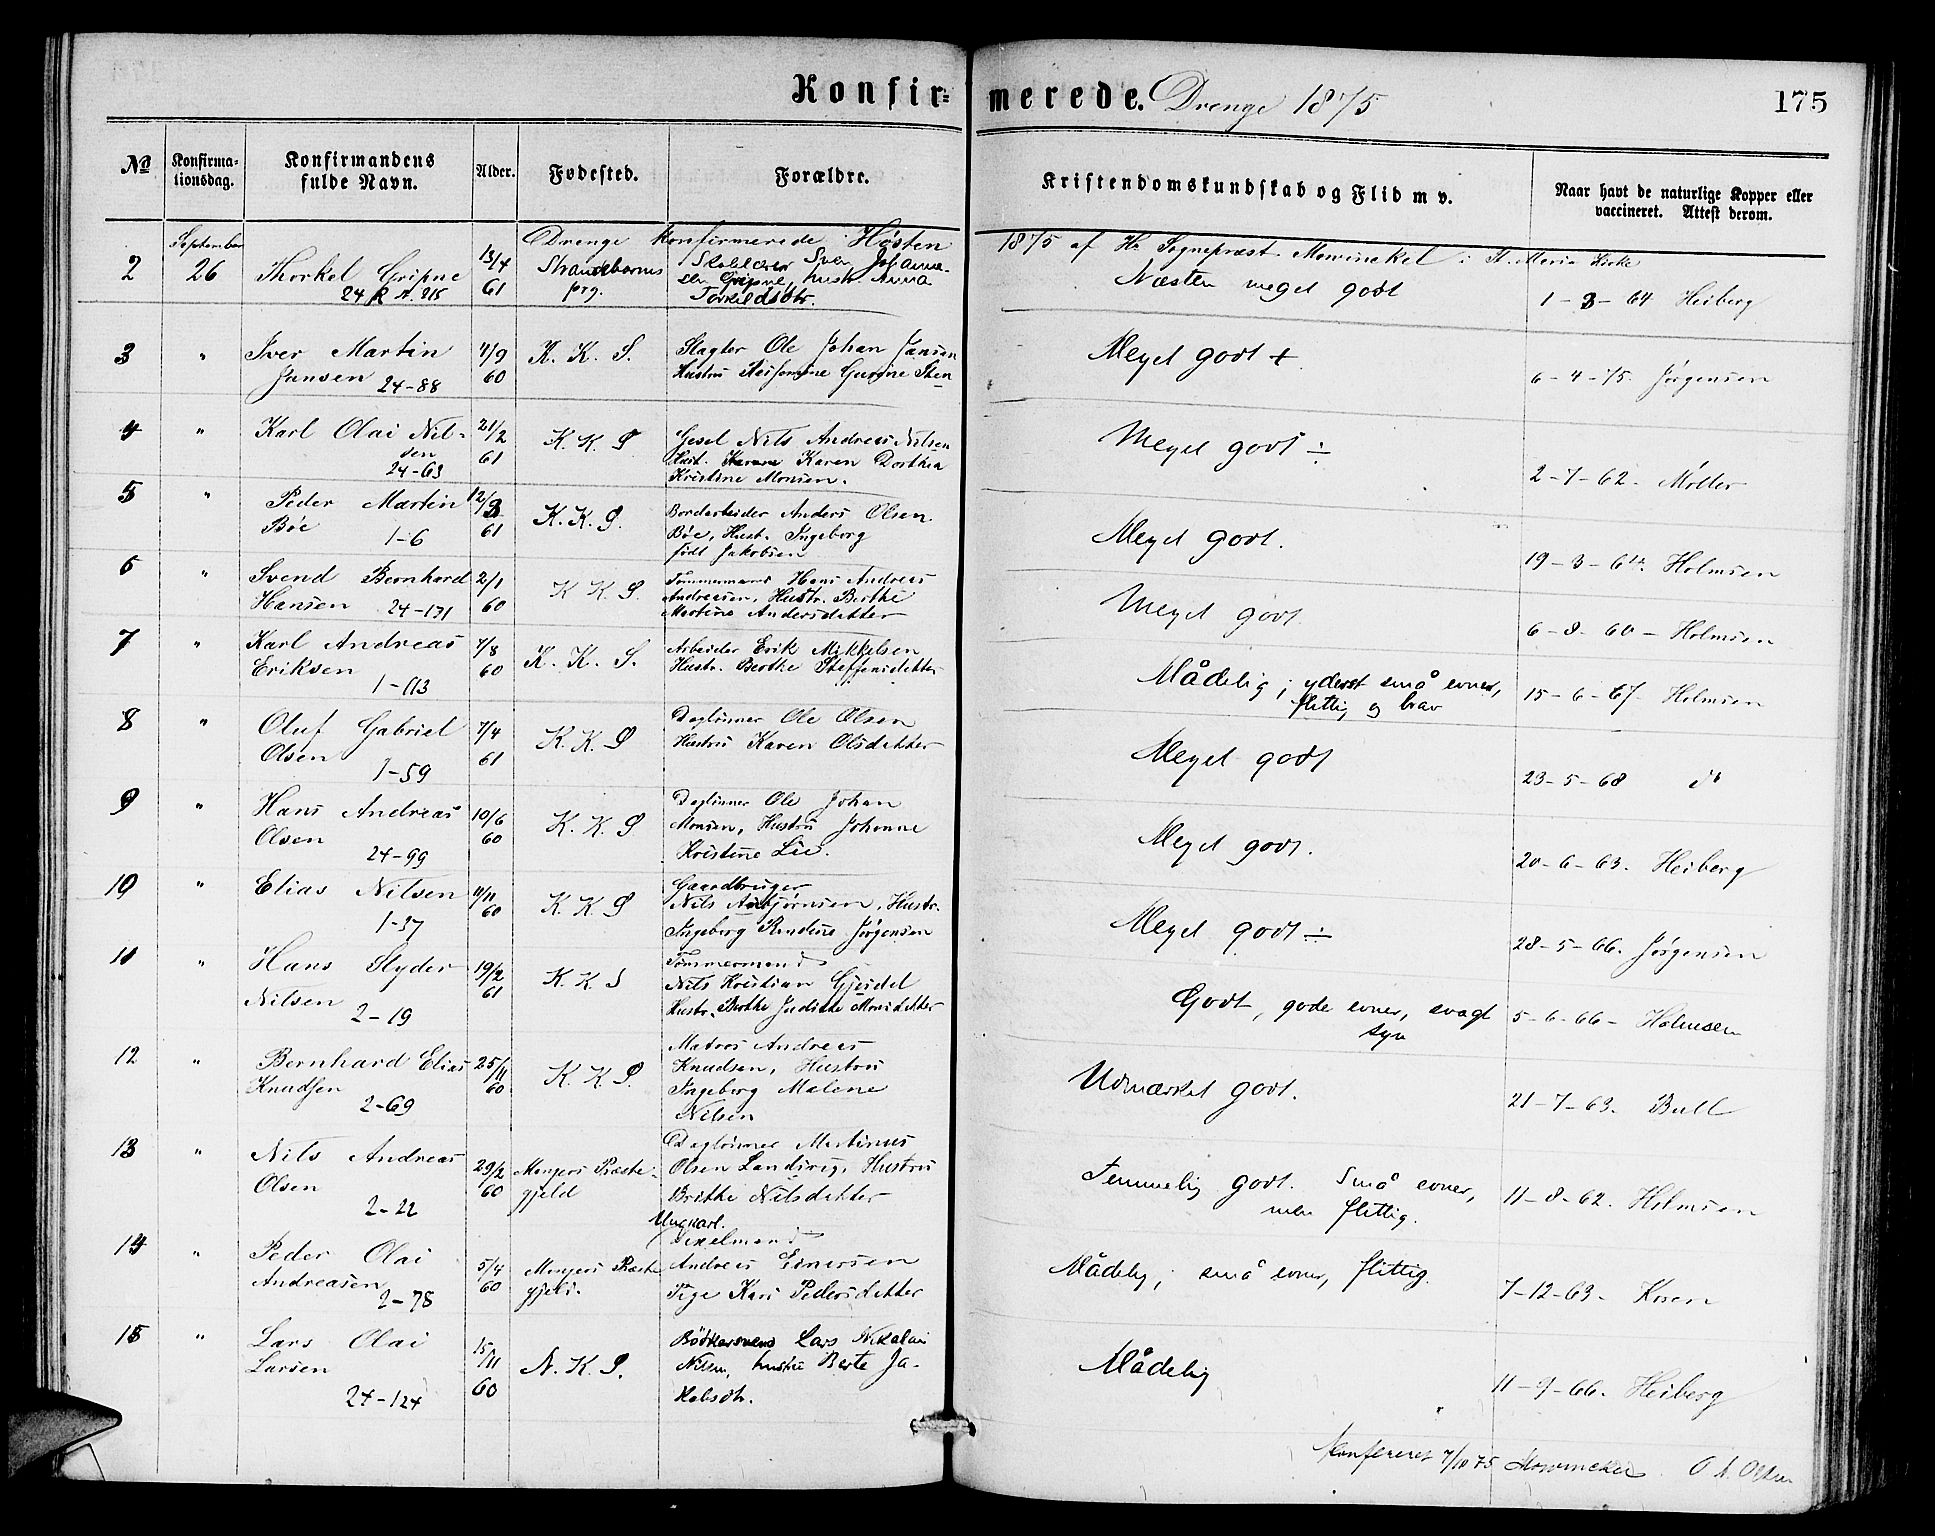 Konfirmerede. Drenge 1875
175
№ Konfirmationsdag. Konfirmandens fulde Navn. Alder. Fødested. Forældre. Kristendomskundskab og Flid m v. Naar havt de naturlige Kopper eller vaccineret. Attest derom.
September Drenge konfirmerede Høsten 1875 af Hr Sognepræst Mowinckel i St. Maria Kirke
2 26 Thorkel Gripne 13/4 61 Strandebarms prg. Sven Johannesen Gripne, hustr. Anna Torkildsdtr. Næsten meget godt 1-3-64 Heiberg
3 " Iver Martin Jansen 24-88 4/9 60 K. K. S. Slagter Ole Johan Jansen Hustru Gurine Sten Meget godt + 6-4-75. Jørgensen
4 " Karl Olai Nilsen 24-63 21/2 61 K. K. S Gesel Nils Andreas Nilsen Hust. Karen Dorthea Kristine Monsen. Meget godt ÷ 2-7-62- Møller
5 " Peder Martin Bøe 1-6 12/3 61 K. K. S. Bordarbeider Anders Olsen Bøe, Hust. Ingeborg født Jakobsen Meget godt. 19-3-64. Holmsen
6 " Svend Bernhard Hansen 24-131 2/1 60 K K. S. Tømmermand Hans Andreas Andreasen, Hustr. Berthe Martine Andersdatter Meget godt. 6-8-60- Holmsen
7 " Karl Andreas Eriksen 1-113 4/8 60 K. K. S. Arbeider Erik Mikkelsen Hustr. Berthe Steffensdatter Mådelig; yderst små evner, flittig og brav 15-6-67- Holmsen
8 " Oluf Gabriel Olsen 1-59 7/4 61 K. K. S Daglønner Ole Olsen Hustru Karen Olsdatter Meget godt 23-5-68 do
9 " Hans Andreas Olsen 24-99 10/6 60 K. K. S Daglønner Ole Johan Monsen, Hustru Johanne Kristine Lie. Meget godt. 20-6-63. Heiberg
10 " Elias Nilsen 1-37 11/11 60 K. K S Gaardbruger Nils Asbjørnsen, Hustr. Ingeborg Jørgensen Meget godt ÷ 28-5-66. Jørgensen
11 " Hans Slyder Nilsen 2-19 19/2 61 K. K. S Tømmermand Nils Kristian Gjeidel Hustr. Berthe Judithe Monsdatter Godt, gode evner, svagt syn 5-6-66- Holmsen
12 " Bernhard Elias Knudsen 2-69 25/11 60 K. K S. Matros Andreas Knudsen, Hustru Ingeborg Malene Nilsen Udmærket godt. 21-7-63. Bull
13 " Nils Andreas Olsen 2-22 29/2 60 Mangers Præstegjeld Daglønner Martinus Olsen Landsvig, Hustru Brithe Nilsdatter Temmelig godt. Små evner, men flittig. 11-8-62. Holmsen
14 " Peder Olai Andreasen 2-78 5/4 60 Mangers Præstegjeld. Ungkarl. Andreas Einersen Pige Kari Pedersdatter Mådelig; små evner, flittig. 7-12-63- Koren
15 " Lars Olai Larsen 24-124 15/11 60 N. K. S. Bødkersvend Lars Nikolai Nilsen, hustru Berte Jakobsdtr. Mådelig 11-9-66. Heiberg
Konfereret 7/10 75 Mowinckel O A Olsen